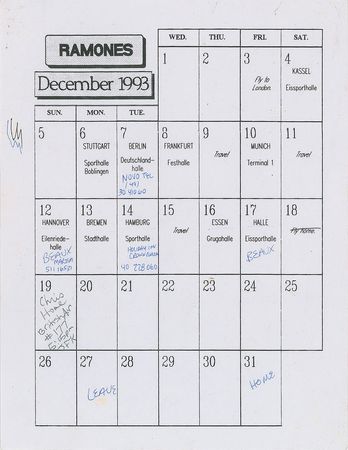 RAMONES
December 1993
WED. THU. FRI. SAT.
1 2 3 4
Fly to
London
KASSEL
Eissporthalle
SUN. MON. TUE.
5 6 7 8 9 10 11
STUTTGART
Sporthalle
Boblingen
BERLIN
Deutschland-
halle
NOVOTEL
FRANKFURT
Festhalle
Travel
MUNICH
Terminal 1
Travel
12 13 14 15 16 17 18
HANNOVER
Eilenriede-
halle
BEAUX
BREMEN
Stadthalle
HAMBURG
Sporthalle
HOLIDAY INN
40 228060
Travel
ESSEN
Grugahalle
HALLE
Eissporthalle
BEAUX
Fly home
19 20 21 22 23 24 25
Home
26 27 28 29 30 31
LEAVE
HOME